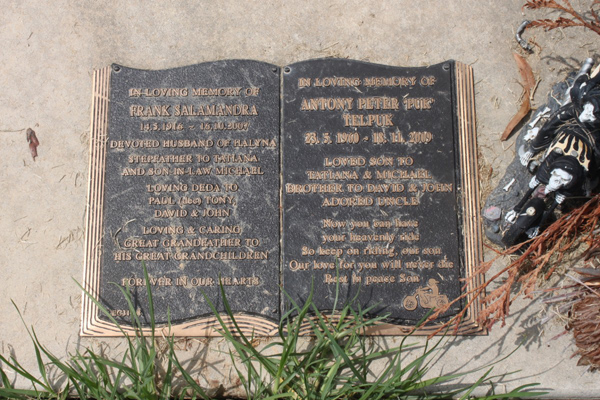 IN LOVING MEMORY OF
FRANK SALAMANDRA
DEVOTED HUSBAND OF HALYNA
STEPFATHER TO TATIANA
AND SON-IN-LAW, MICHAEL
LOVING DEDA TO
PAUL TONY
DAVID & JOHN
LOVING & CARING
GREAT GRANDFATHER TO
HIS GREAT GRANDCHILDREN
FOREVER IN OUR HEARTS
IN LOVING MEMORY OF
ANTONY PETER
LOVED SON TO
TATIANA & MICHAEL
BROTHER TO DAVID & JOHN
ADORED UNCLE
Now you can have
your heavenly ride
So keep on riding, our son
Our love for you will never die
Rest in peace Son